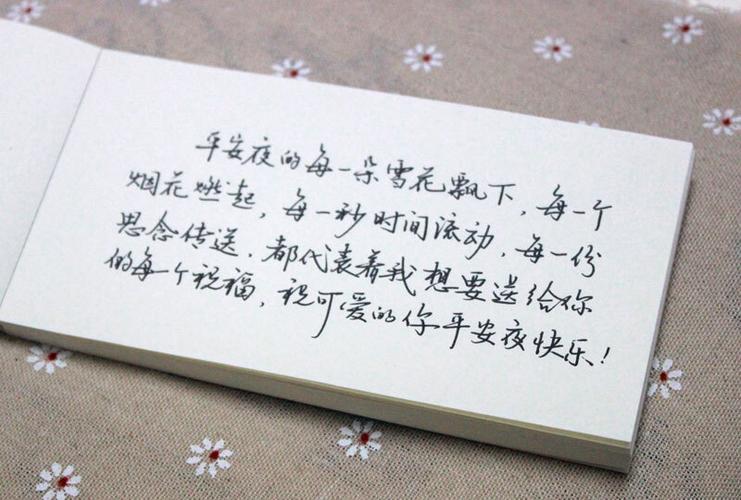 平安夜的每一朵雪花飘下，每一个
烟花燃起，每一秒时间流动，每一份
思念传送，都代表着我想要送给你
的每一个祝福，祝可爱的你平安夜快乐！